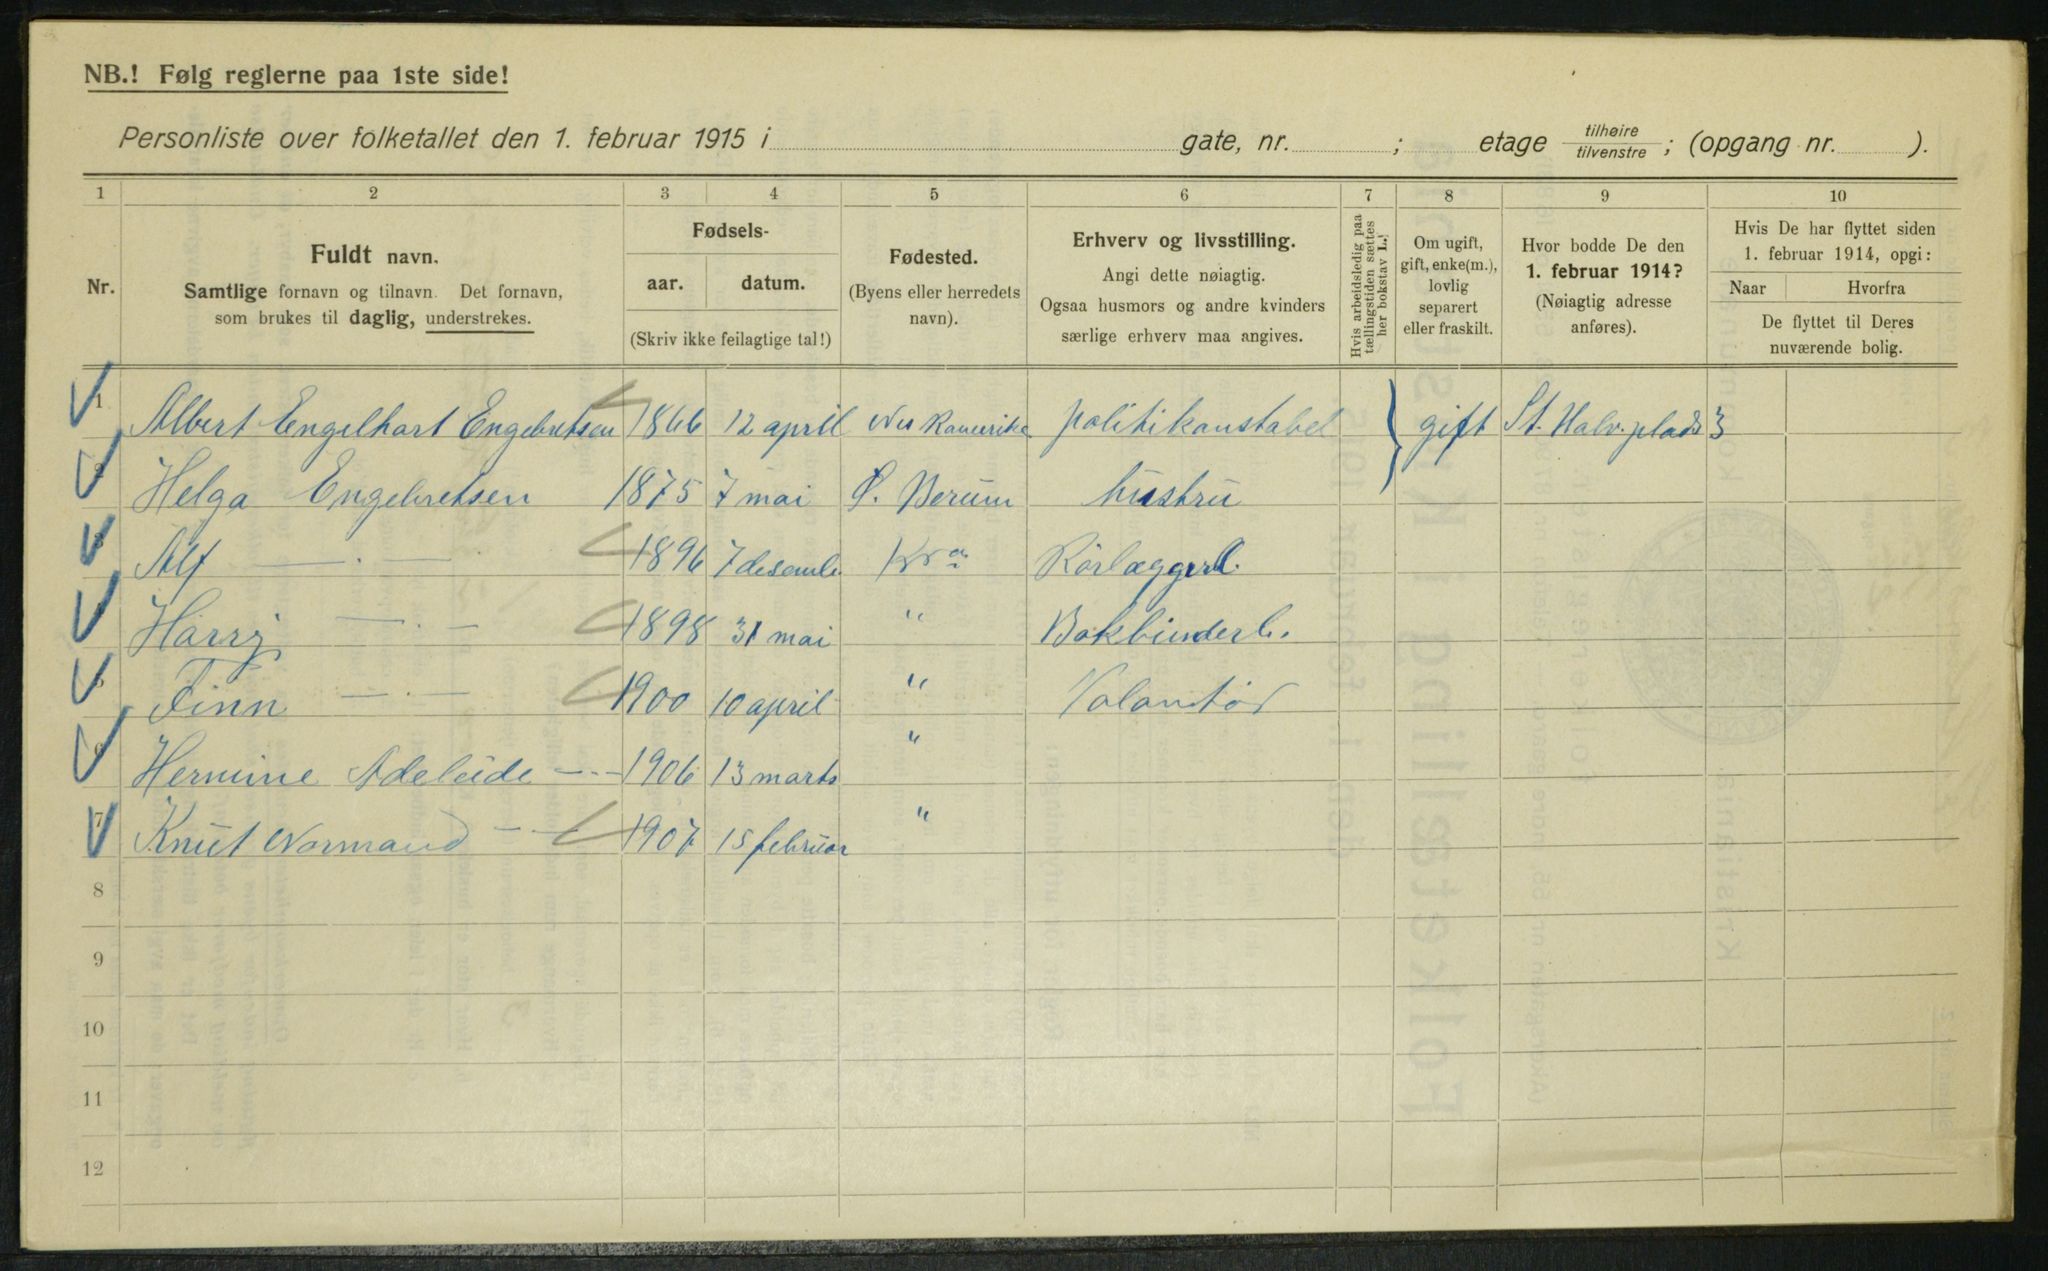 NB.! Følg reglerne paa 1ste side!
Personliste over folketallet den 1. februar 1915 i gate, nr. ; etage tilhøire tilvenstre ; (opgang nr. ).
1 2 3 4 5 6 7 8 9 10
Nr.
Fuldt navn.
Samtlige fornavn og tilnavn. Det fornavn,
som brukes til daglig, understrekes.
Fødsels-
aar. datum.
(Skriv ikke feilagtige tal!)
Fødested.
(Byens eller herredets
navn).
Erhverv og livsstilling.
Angi dette nøiagtig.
Ogsaa husmors og andre kvinders
særlige erhverv maa angives.
Hvis arbeidsledig paa
tællingstiden sættes
her bokstav L.!
Om ugift,
gift, enke(m.),
lovlig
separert
eller fraskilt.
Hvor bodde De den
1. februar 1914?
(Nøiagtig adresse
anføres).
Hvis De har flyttet siden
1. februar 1914, opgi:
Naar Hvorfra
De flyttet til Deres
nuværende bolig.
1 Albert Engelhart Engebretsen 1866 12 april Nes Romerike politikonstabel } gift St. Halv. plads 3
2 Helga Engebretsen 1875 7 mai Ø. Berum hustru
3 Alf — . — 1896 7 desemb. Kra Rörlæggerl.
4 Harry — . — 1898 31 mai " Bokbinderl.
5 Finn — . — 1900 10 april " Volontör
6 Hermine Adeleide — . — 1906 13 marts "
7 Knut Normand — . — 1907 15 februar "
8
9
10
11
12